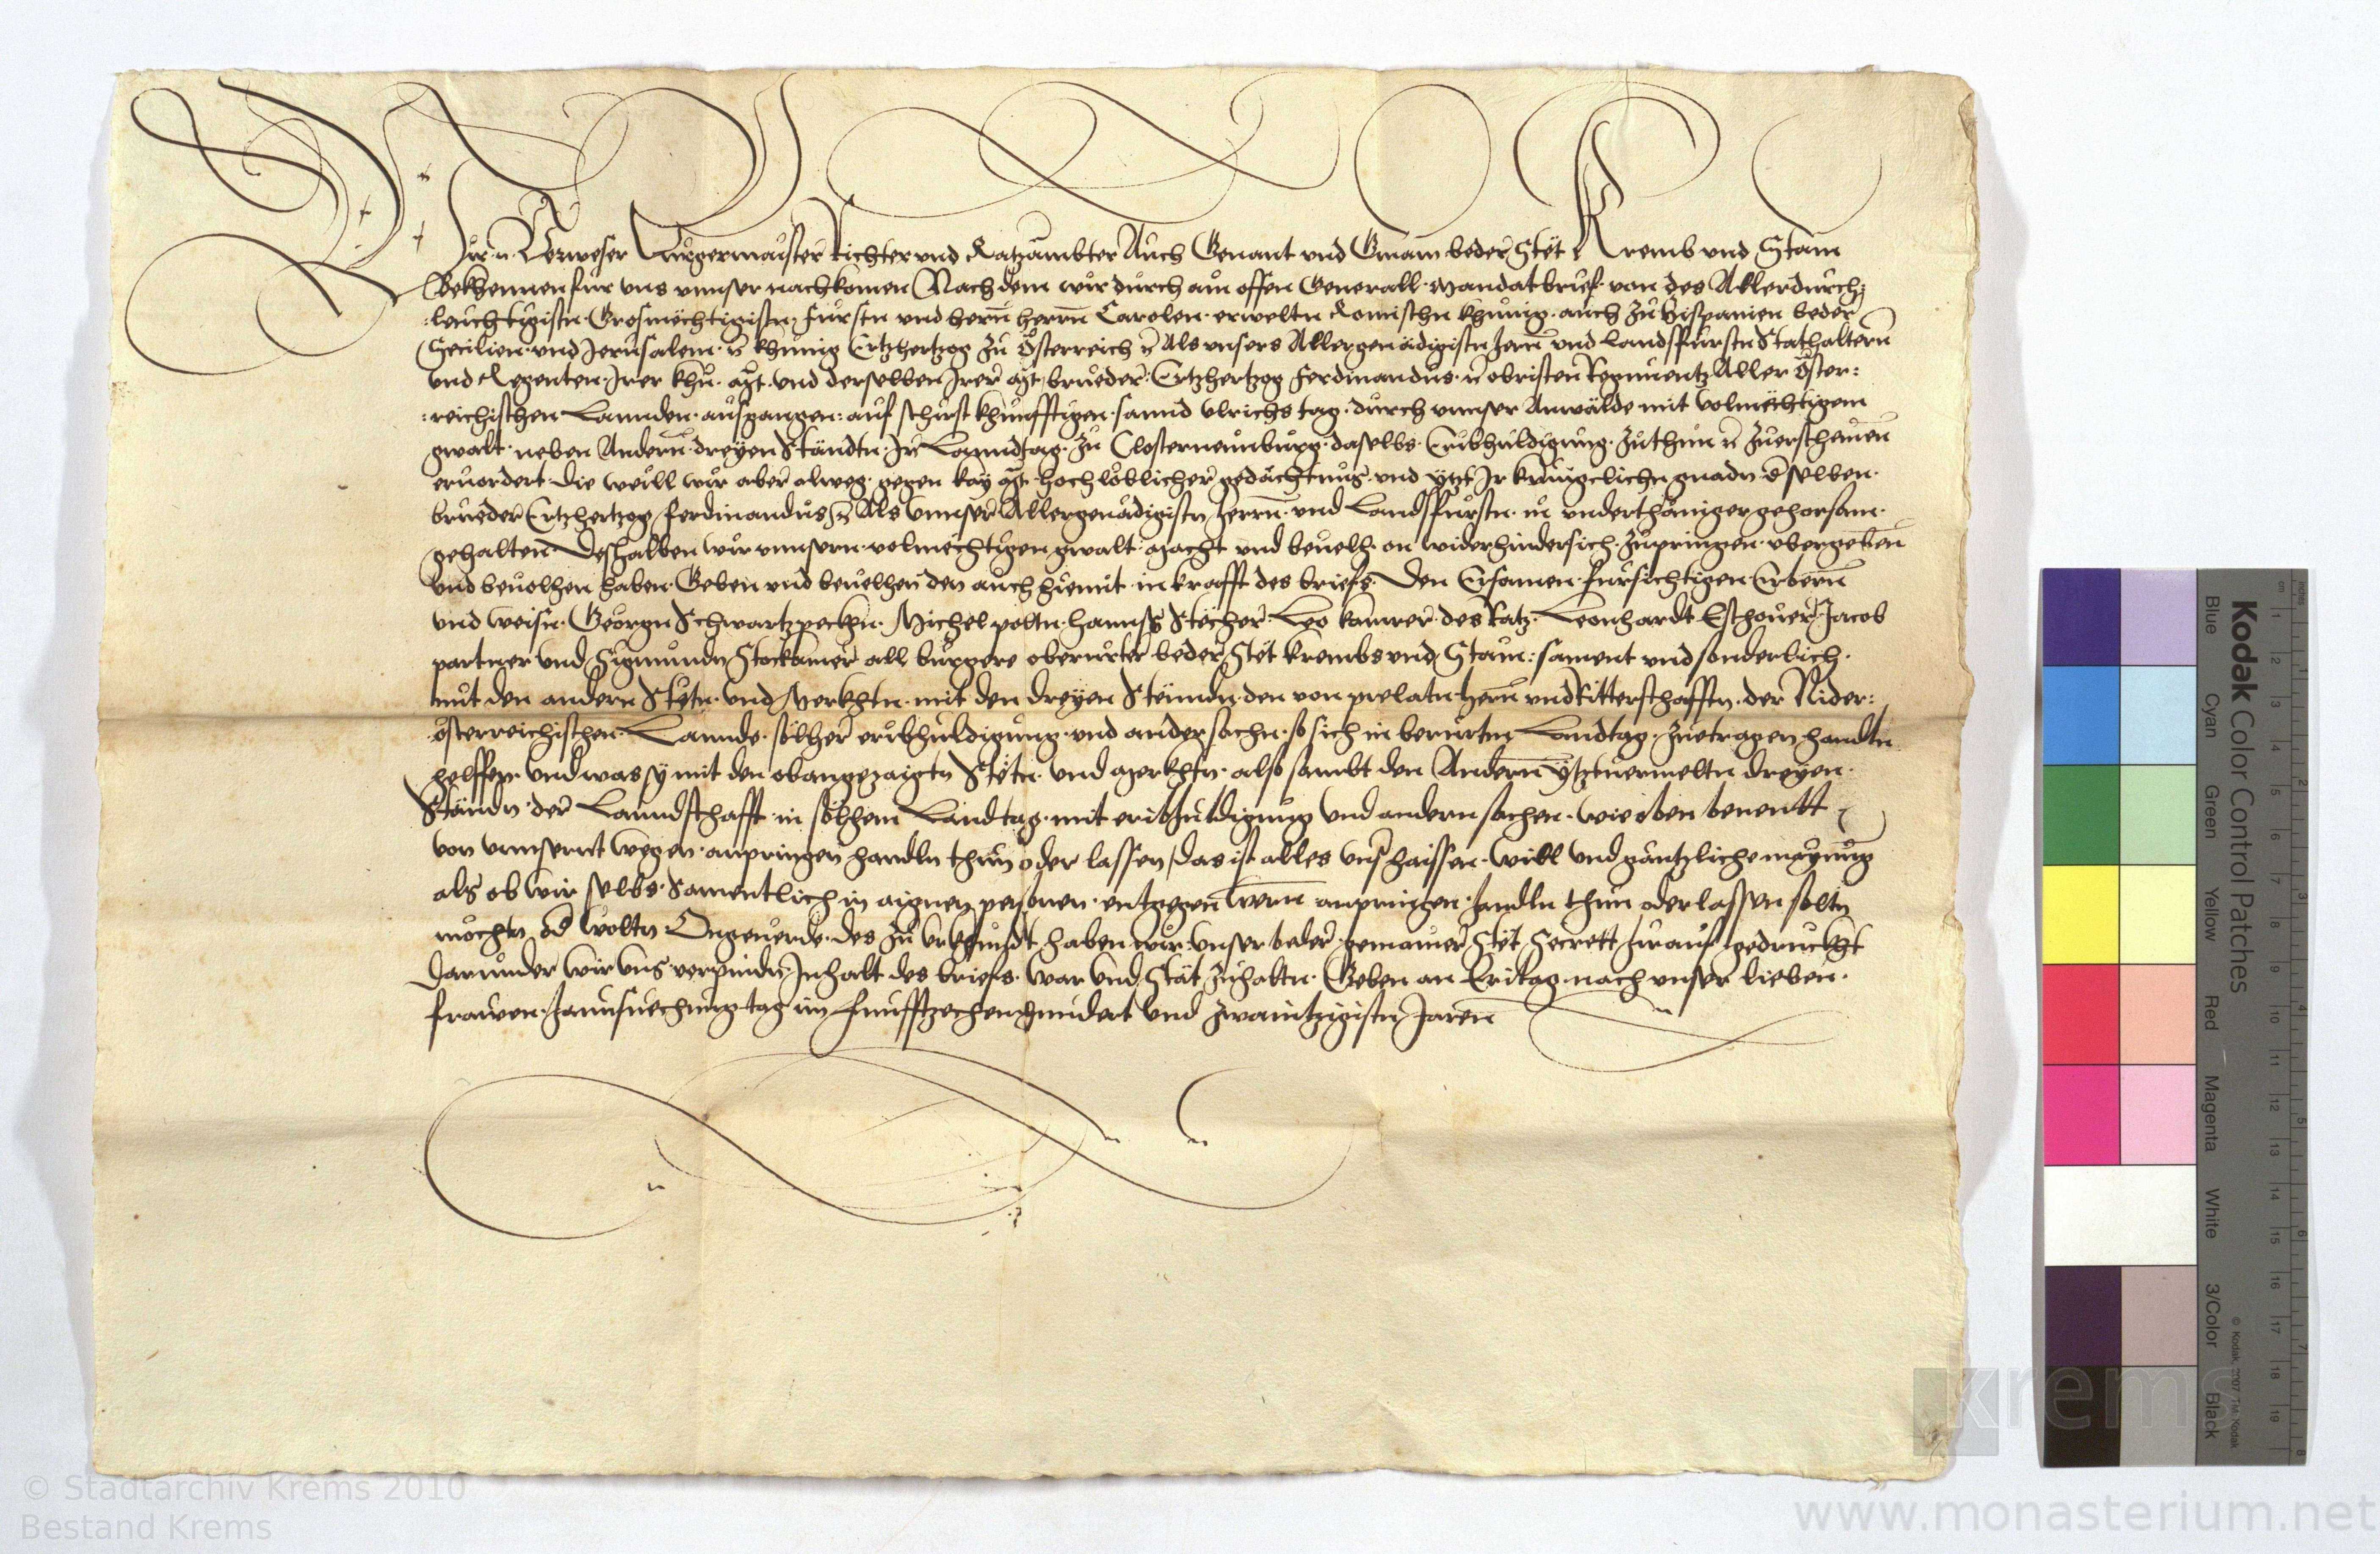 Wir n Verweser Burgermaister Richter und Ratzämbter Auch Genant und Gmain beder Stët Kremb und Stain
Bekhennen fur uns unnser nachkomen Nachdem wir durch ain offen Generall Mandatbrief von des Allerdurch:
:leuchtigistn Grosmëchtigistn Fürstn und hern herrn Carolen erweltn Romischn khunig auch zu Hispanien beder
Secilien und Jerusalem rc khunig Ertzhertzog zu Österreich rc Als unsers Allergenädigistn herrn und Landsfürstn Stathaltern
und Regenten Irer khu. Mt. und derselben Irer Mt brueder Ertzhertzog Ferdinandus rc obristen Regiments Aller Öster:
:reichischen Lannden ausgangen: auf schirst khunfftigen sannd Ulrichs tag durch unnser Anwälde mit volmëchtigem
gwalt neben Andern dreyen Ständtn Im Lanndtag zu Closterneunburg daselbs Eribhuldigung zuthun rc zuerscheinen
ervordert Die weill wir aber alweg gegen kay Mt hochlöblicher gedächtnus und yetzt Ir kuniglichn gnadn derselben
brueder Ertzhertzog Ferdinandus rc Als Unnser Allergenädigistn herrn und Landsfürstn in underthäniger gehorsam
gehalten Deshalben wir unnsern volmëchtigen gwalt macht und bevelh on widerhindersich zupringen ubergeben
und bevolhen haben Geben und bevelhen den auch hiemit in krafft des briefs Den Ersamen fursichtigen Erbern
und weisn Georgn Schwartzpeckhn Michel poltn Hanns Stecher Leo kamrer des Ratz Leonhardt Eschover Jacob
partner und Sigmundn Stockamer all burgere oberurter beder Stët krembs und Stain: sament und sonderlich
mit den andern Stëtn und Merkhtn mit den dreyen Stënndn den von prelatn hern und Ritterschafftn der Nider:
österreichischen Lannde sölher eribhuldigung und ander sachn so sich in berurtm Landtag zuetragen handln
helffen Und was sy mit den obangezaigtn Stëtn und Merkhtn also sambt den Andern yetztvermeltn dreyen
Ständn der Lanndschafft in sölhem Landtag mit eribhuldigung und andern sachen wie oben benentt
von unnsernt wegen anpringen handln thun oder lassen das ist alles unser haissen will und gäntzliche maynung
als ob wir selbs samentlich in aignen personen entgegen wern anpringen handln thun oder lassen soltn
möchtn oder woltn Ongeverde des zu urkhundt haben wir unser beder gemainer Stët Secrett hirauf gedruckht
darunder wir uns verpindn Inhalt des briefs war und Stät zuhaltn Geben an Eritag nach unser lieben
frawen haimsuechung tag im Funfftzechenhundert und zwaintzigistn Jaren
Kodak Color Control Patches
Blue Cyan Green Yellow Red Magenta White 3/Color Black
krems
© Stadtarchiv Krems 2010
Bestand Krems
www.monasterium.net